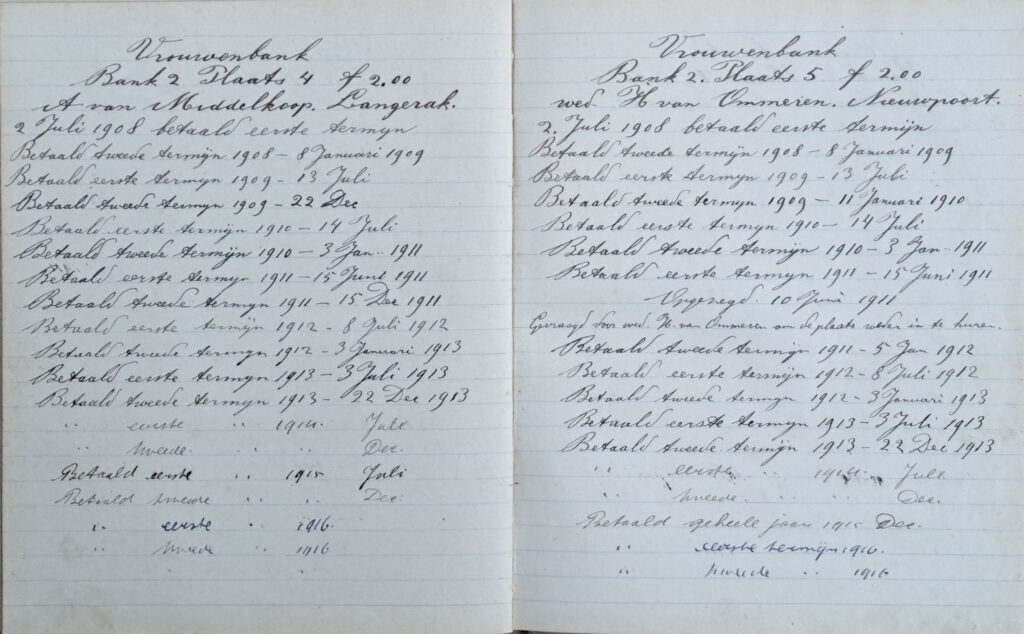 Vrouwenbank
Bank 2 Plaats 4 f 2.00
A van Middelkoop. Langerak.
2 Juli 1908 betaald eerste termyn
Betaald tweede termijn 1908 - 8 Januari 1909
Betaald eerste termyn 1909 - 13 Juli
Betaald tweede termyn 1909 - 22 Dec
Betaald eerste termyn 1910 - 14 Juli
Betaald tweede termijn 1910 - 3 Jan.. 1911
Betaald eerste termyn 1911 - 15 Juni 1911
Betaald tweede termyn 1911 - 15 Dec 1911
Betaald eerste termijn 1912 - 8 Juli 1912
Betaald tweede termyn 1912 - 3 Januari 1913
Betaald eerste termyn 1913 - 3 Juli 1913
Betaald tweede termyn 1913 - 22 Dec 1913
" eerste " 1914 Juli
" tweede " " Dec.
Betaald eerste " 1915 Juli
Betaald tweede " " Dec.
" eerste " 1916.
" tweede " 1916
Vrouwenbank
Bank 2. Plaats 5 f 2.00
wed H van Ommeren. Nieuwpoort.
2. Juli 1908 betaald eerste termijn
Betaald tweede termijn 1908 - 8 Januari 1909
Betaald eerste termijn 1909 - 13 Juli
Betaald tweede termyn 1909 - 11 Januari 1910
Betaald eerste termyn 1910 - 14 Juli
Betaald tweede termijn 1910 - 3 Jan.. 1911
Betaald eerste termyn 1911 - 15 Juni 1911
Opgezegd. 10 Juni 1911
Gevraagd door wed. H. van Ommeren om de plaats weder in te huren.
Betaald tweede termyn 1911 - 5 Jan 1912
Betaald eerste termyn 1912 - 8 Juli 1912
Betaald tweede termyn 1912 - 3 Januari 1913
Betaald eerste termyn 1913 - 3 Juli 1913
Betaald tweede termyn 1913 - 22 Dec 1913
" eerste " 1914 Juli
" tweede " " Dec.
Betaald geheele jaar 1915 Dec.
" eerste termijn 1916.
" tweede " 1916